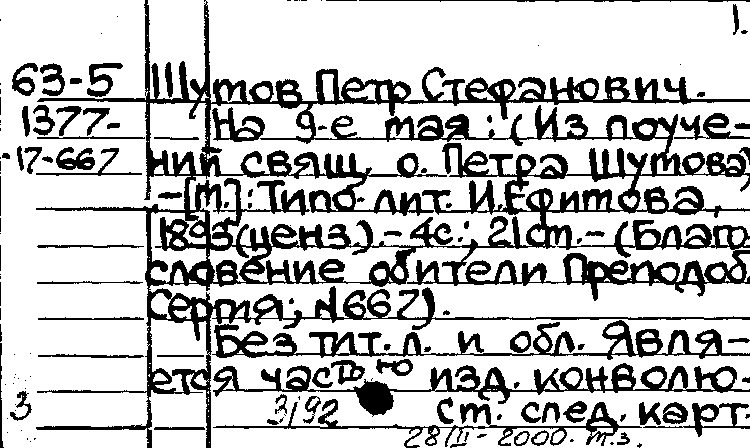 1.
63-5 Шутов, Петр Стефанович.
1377- На 9-е мая: (Из поуче-
-17-667 ний свящ. о. Петра Шутова)
.-[М.]: Типо-лит. И.Ефимова,
1895(ценз.).-4с.; 21см.-(Благо-
словение обители Преподоб.
Сергия; №667).
Без тит.л. и обл. Явля-
ется частью изд. конволю-
3 3/92 См. след. карт.
28/II-2000. т.з.